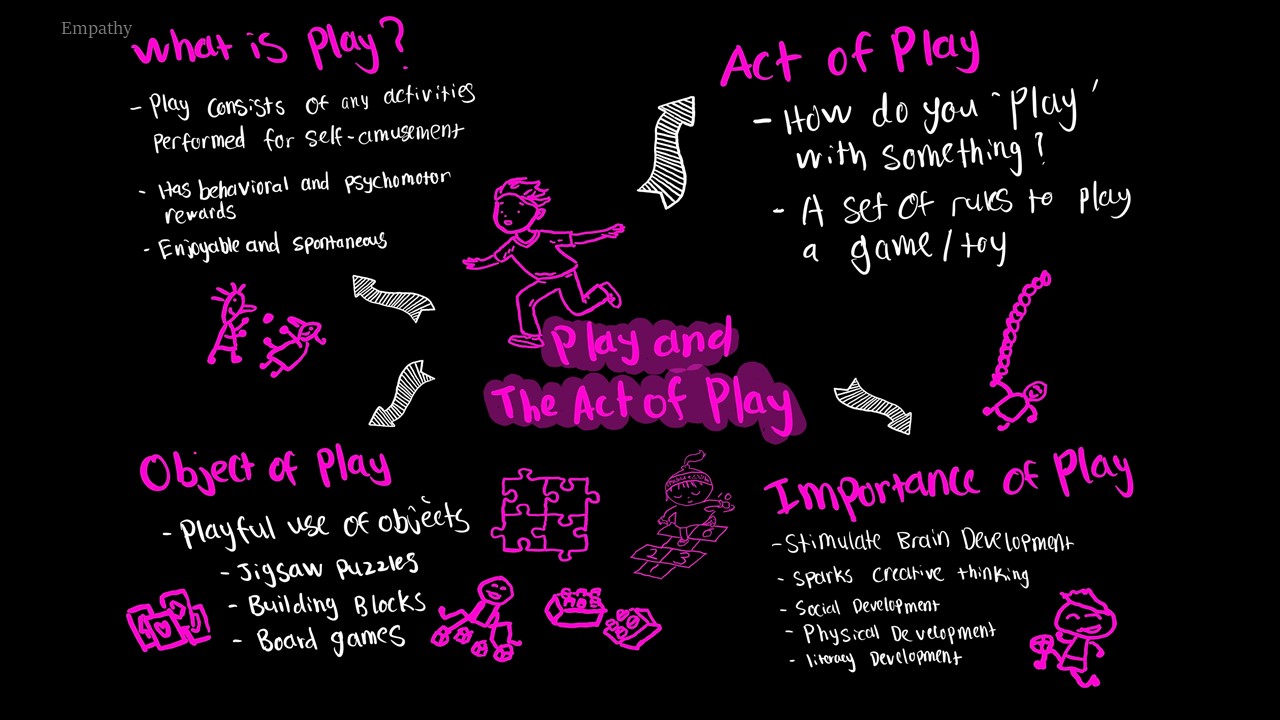 Empathy
What is Play?
- Play consists of any activities
performed for self-amusement
- Has behavioral and psychomotor
rewards
- Enjoyable and spontaneous
Act of Play
- How do you "Play"
with something?
- A set of rules to play
a game/toy
Play and
The Act of Play
Object of Play
- Playful use of objects
- Jigsaw Puzzles
- Building Blocks
- Board games
1 2 3
Importance of Play
- Stimulate Brain Development
- Sparks creative thinking
- Social Development
- Physical Development
- literacy Development